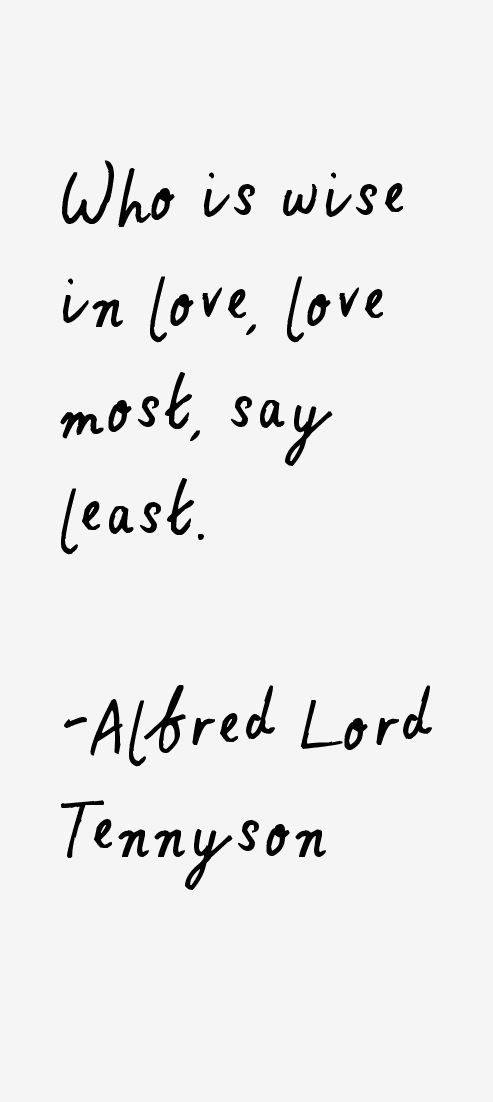 Who is wise
in love, love
most, say
least.
-Alfred Lord
Tennyson